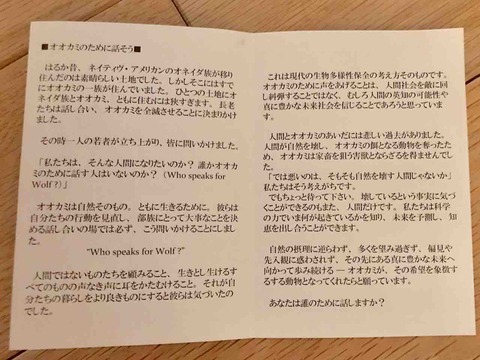 ■オオカミのために話そう■
はるか昔、ネイティヴ・アメリカンのオネイダ族が移り
住んだのは素晴らしい土地でした。しかしそこにはすで
にオオカミの一族が住んでいました。ひとつの土地にオ
ネイダ族とオオカミ、ともに住むには狭すぎます。長老
たちは話し合い、オオカミを全滅させることに決まりか
けました。
その時一人の若者が立ち上がり、皆に問いかけました。
「私たちは、そんな人間になりたいのか？ 誰かオオカミ
のために話す人はいないのか？（Who speaks for
Wolf？）」
オオカミは自然そのもの。ともに生きるために、彼らは
自分たちの行動を見直し、部族にとって大事なことを決
める話し合いの場では必ず、こう問いかけることにしま
した。
"Who speaks for Wolf？"
人間ではないものたちを顧みること、生きとし生けるす
べてのものの声なき声に耳をかたむけること。それが自
分たちの暮らしをより良きものにすると彼らは気づいたの
でした。
これは現代の生物多様性保全の考え方そのものです。
オオカミのために声をあげることは、人間社会を敵に回
し糾弾することではなく、むしろ人間の英知の可能性や
真に豊かな未来社会を信じることであろうと思っていま
す。
人間とオオカミのあいだには悲しい過去がありました。
人間が自然を壊し、オオカミの餌となる動物を奪ったた
め、オオカミは家畜を狙う害獣とならざるを得ませんでし
た。
「では悪いのは、そもそも自然を壊す人間じゃないか」
私たちはそう考えがちです。
でもちょっと待って下さい。壊しているという事実に気づく
ことができるのもまた、人間だけです。私たちは科学
の力でいま何が起きているかを知り、未来を予測し、知
恵を出し合うことができます。
自然の摂理に逆らわず、多くを望み過ぎず、偏見や
先入観に惑わされず、その先にある真に豊かな未来へ
向かって歩み続ける ― オオカミが、その希望を象徴
する動物となってくれたらと願っています。
あなたは誰のために話しますか？